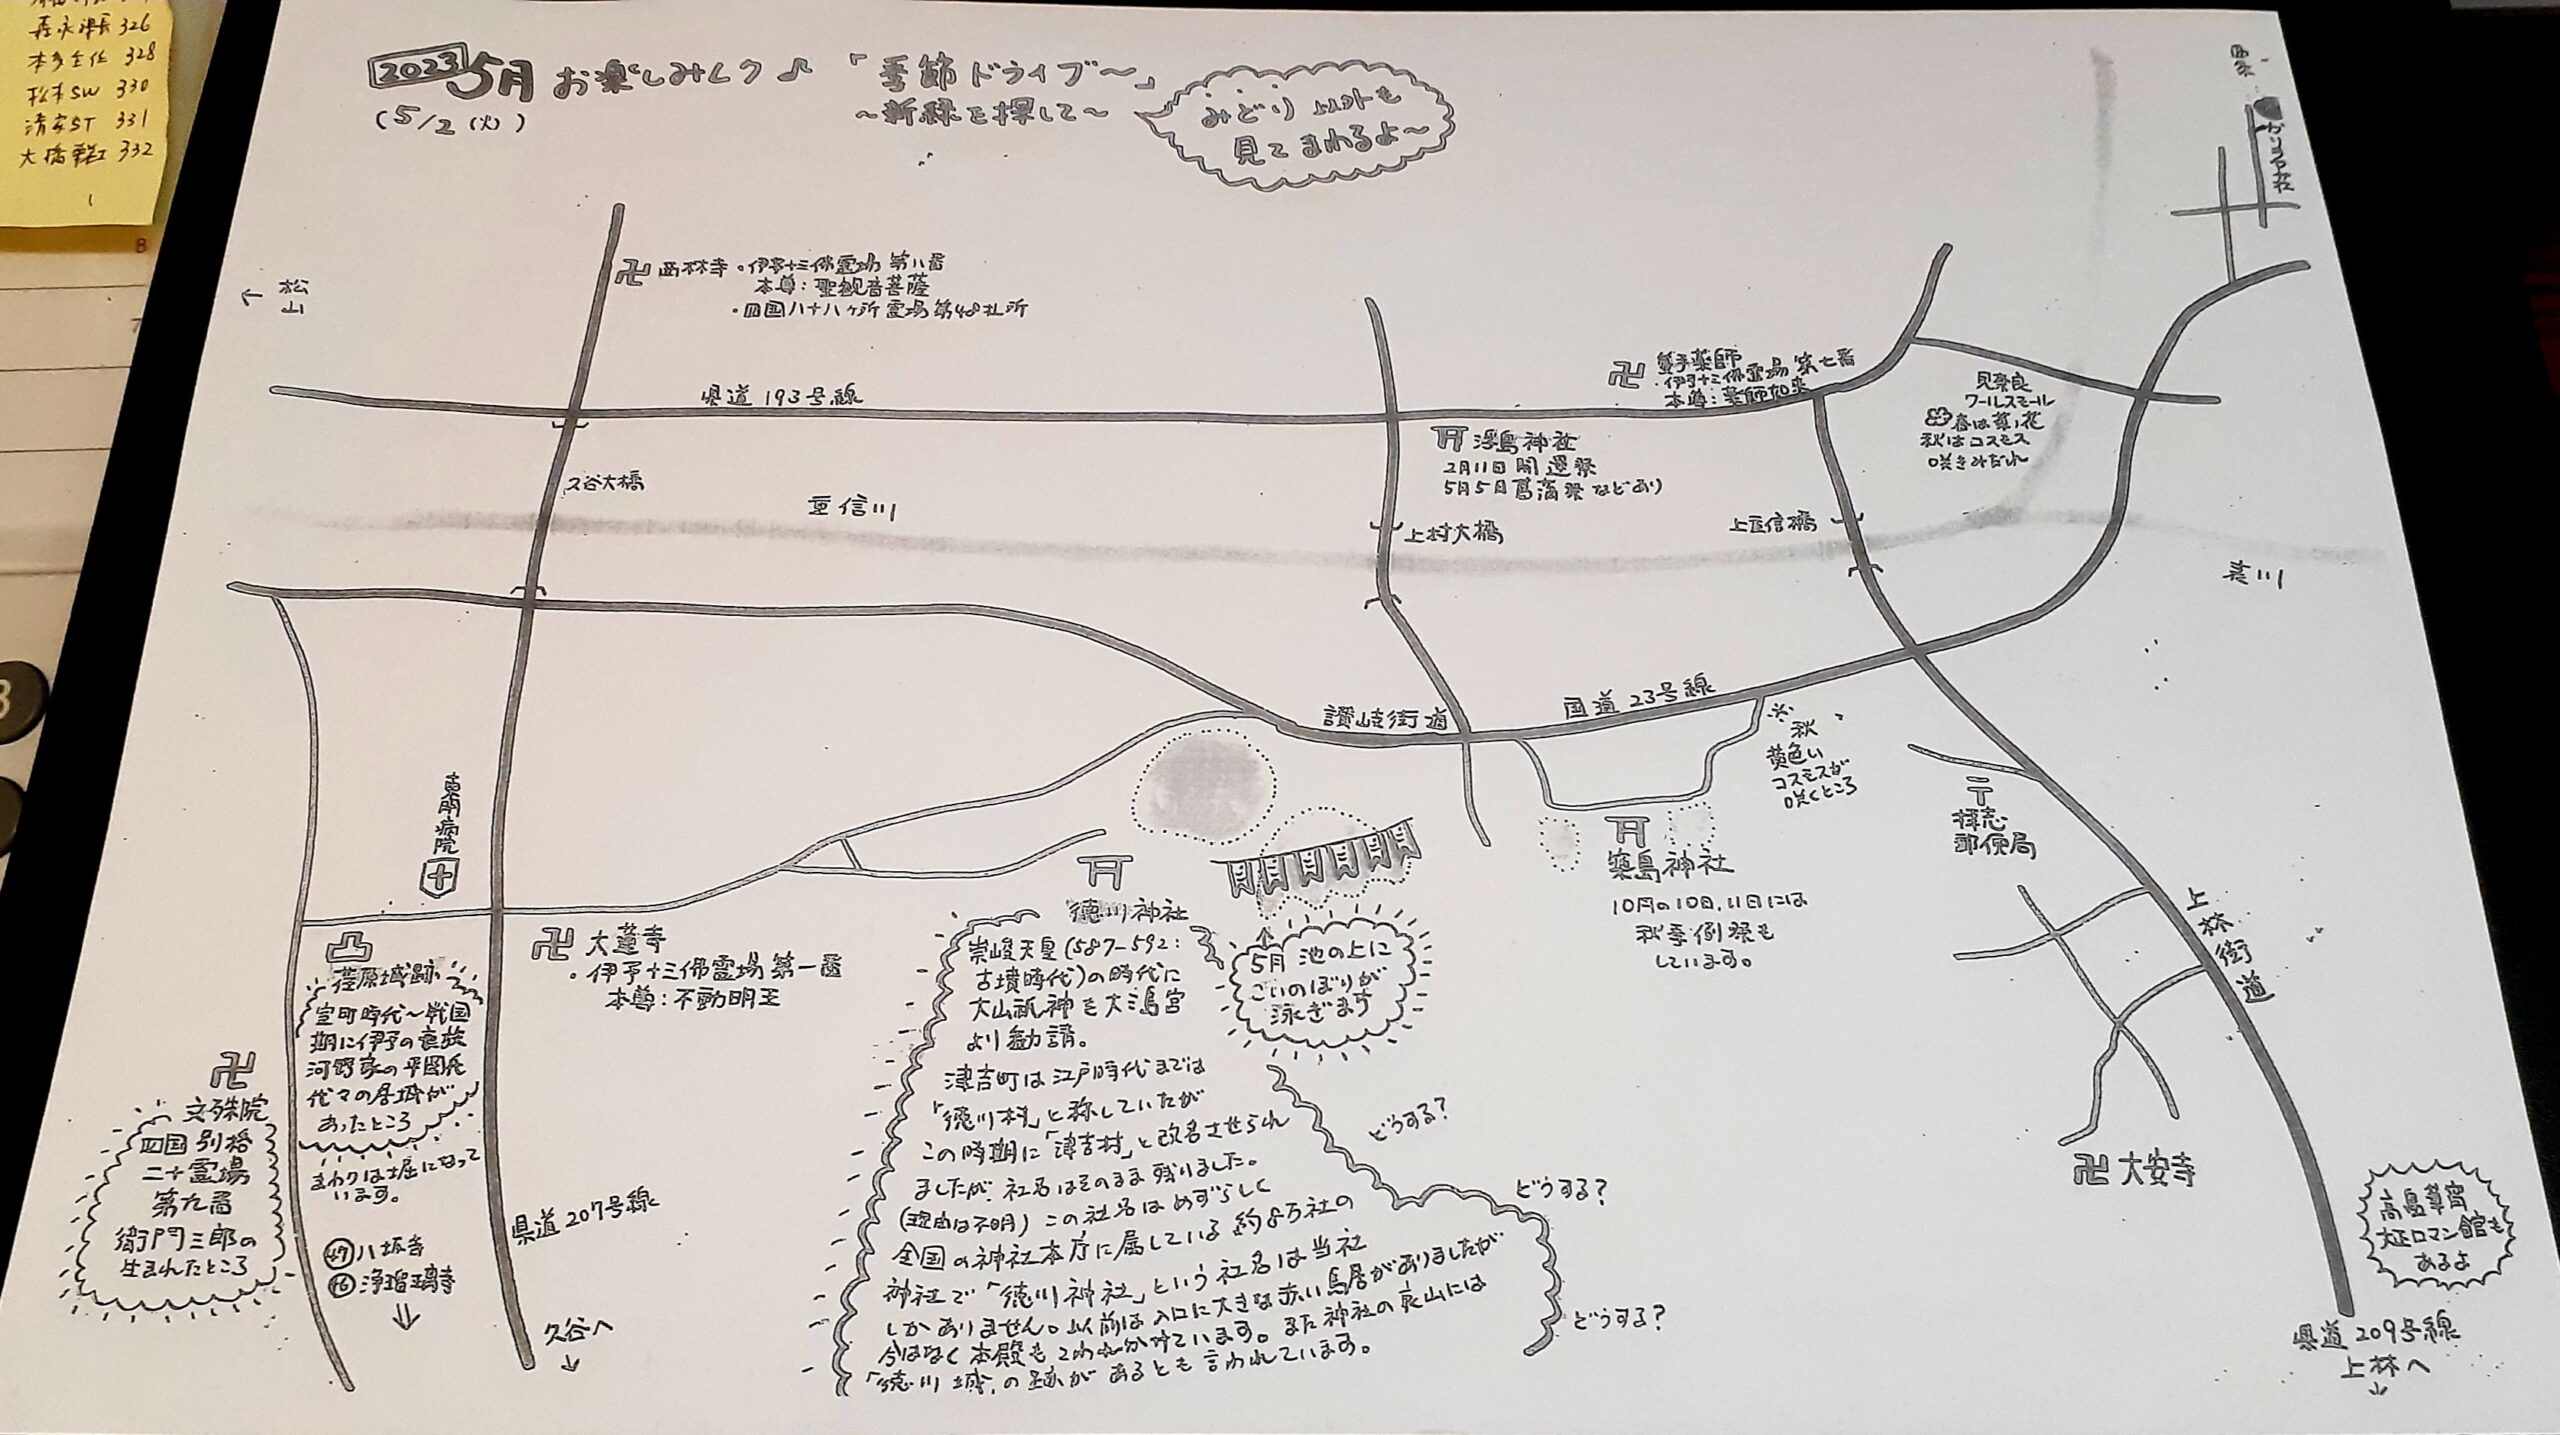 326
本多主任 328
松本SW 330
清家ST 331
332
8
7
2023 5月 お楽しみレク♪ 「季節ドライブ〜」
(5/2(火))
〜新緑を探して〜
みどり以外も
見てまわるよ〜
かりゆう荘
←
松山
卍 西林寺・伊予十三佛霊場 第八番
本尊:聖観音菩薩
・四国八十八ヶ所霊場第48札所
県道193号線
卍 蟹手薬師
・伊予十三佛霊場 第七番
本尊:薬師如来
見奈良
ワールスモール
春は菜ノ花
秋はコスモス
咲きみだれ
浮島神社
2月11日開運祭
5月5日菖蒲祭などあり
久谷大橋
重信川
上村大橋
上重信橋
表川
讃岐街道
国道23号線
※秋
黄色い
コスモスが
咲くところ
〒
拝志
郵便局
東明病院
築島神社
10月の10日,11日には
秋季例祭も
しています。
上林街道
卍 大蓮寺
・伊予十三佛霊場第一番
本尊:不動明王
凸
荏原城跡
室町時代〜戦国
期に伊予の豪族
河野家の平岡氏
代々の居城が
あったところ
まわりは堀になって
います。
卍
文殊院
四国別格
二十霊場
第九番
衛門三郎の
生まれたところ
㊼八坂寺
㊻浄瑠璃寺
⇓
県道207号線
久谷へ
↓
徳川神社
崇峻天皇(587-592:
古墳時代)の時代に
大山祇神を大三島宮
より勧請。
津吉町は江戸時代までは
「徳川村」と称していたが
この時期に「津吉村」と改名させられ
ましたが、社名はそのまま残りました。
(理由は不明)この社名はめずらしく
全国の神社本庁に属している約8万社の
神社で「徳川神社」という社名は当社
しかありません。以前は入口に大きな赤い鳥居がありましたが
今はなく本殿もこわれかけています。また神社の裏山には
「徳川城」の跡があるとも言われています。
↑
5月 池の上に
こいのぼりが
泳ぎます
どうする?
どうする?
どうする?
卍 大安寺
高畠華宵
大正ロマン館も
あるよ
県道209号線
上林へ
↓